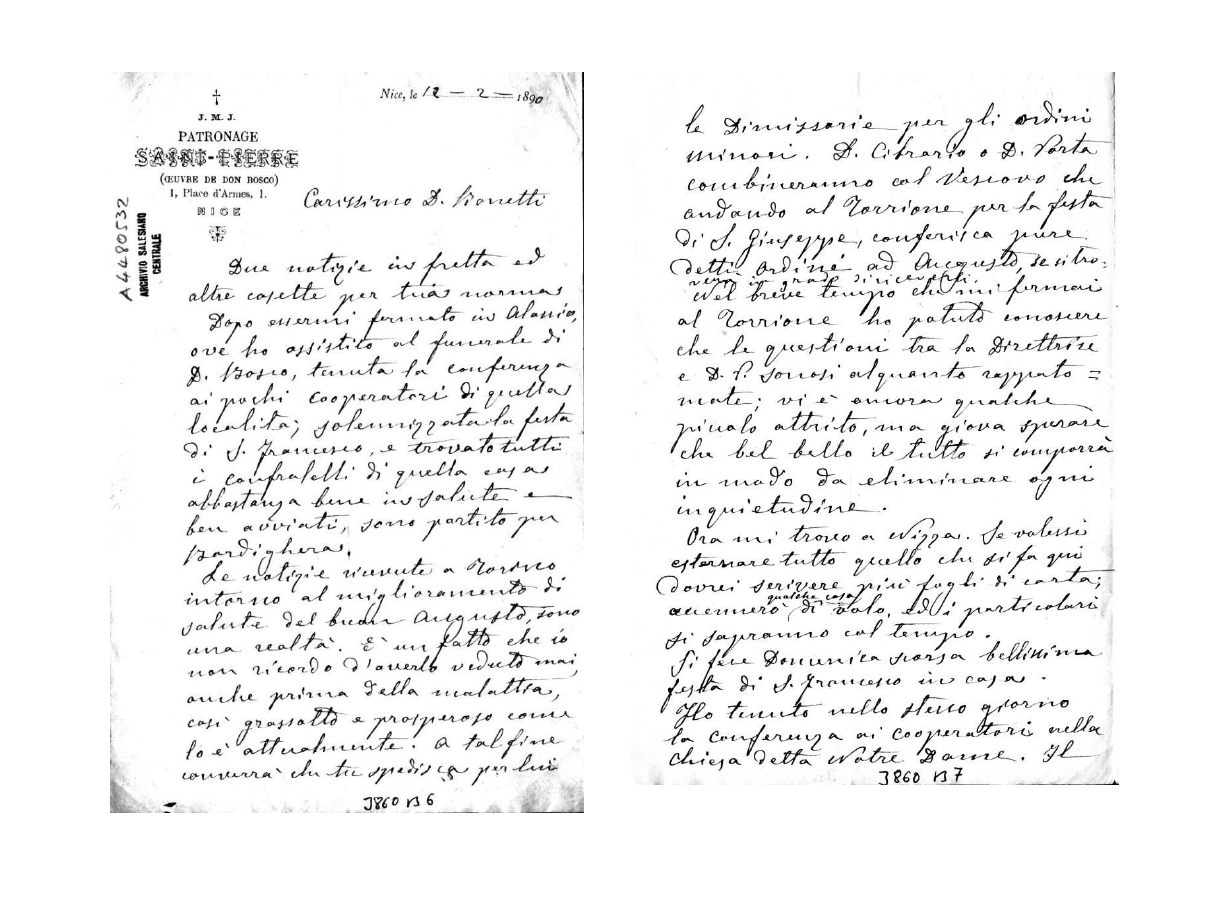 Nice, le 12 — 2 — 1890
J. M. J.
PATRONAGE
SAINT-PIERRE
(ŒUVRE DE DON BOSCO)
1, Place d'Armes, 1.
NICE
A4480532
ARCHIVIO SALESIANO
CENTRALE
Carissimo D. Bonetti
Due notizie in fretta ed
altre cosette per tua norma
Dopo essermi fermato in Alassio,
ove ho assistito al funerale di
D. Bosco, tenuta la conferenza
ai pochi cooperatori di quella
località; solennizzata la festa
di S. Francesco, e trovato tutti
i confratelli di quella casa
abbastanza bene in salute e
ben avviati, sono partito per
Bordighera.
Le notizie ricevute a Torino
intorno al miglioramento di
salute del buon Augusto, sono
una realtà. È un fatto che io
non ricordo d'averlo veduto mai,
anche prima della malattia,
così grassotto e prosperoso come
lo è attualmente. A tal fine
converrà che tu spedisca per lui
3860 B 6
le Dimissorie per gli ordini
minori. D. Cibrario o D. Porta
combineranno col Vescovo che
andando al Torrione per la festa
di S. Giuseppe, conferisca pure
detti ordini ad Augusto, se si tro=
verà in grado di riceverli.
Nel breve tempo che mi fermai
al Torrione ho potuto conoscere
che le questioni tra la Direttrice
e D. P. sonosi alquanto rappato=
mate; vi è ancora qualche
piccolo attrito, ma giova sperare
che bel bello il tutto si comporrà
in modo da eliminare ogni
inquietudine.
Ora mi trovo a Nizza. Se volessi
esternare tutto quello che si fa qui
dovrei scrivere più fogli di carta;
accennerò qualche cosa di volo, ed i particolari
si sapranno col tempo.
Si fece Domenica scorsa bellissima
festa di S. Francesco in casa.
Ho tenuto nello stesso giorno
la conferenza ai cooperatori nella
chiesa detta Notre Dame. Il
3860 B 7